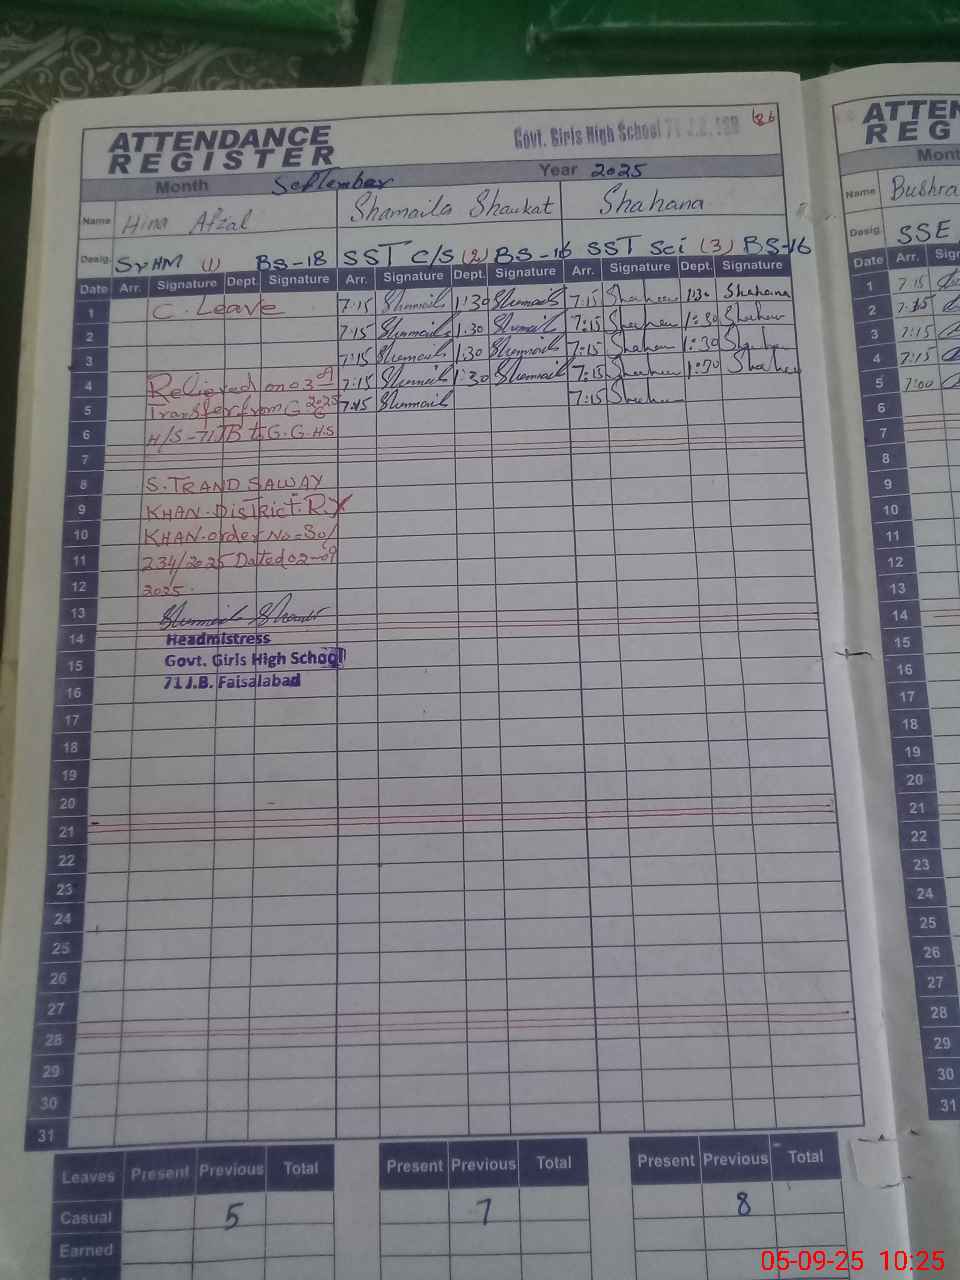 ATTENDANCE REGISTER
Govt. Girls High School 71 J.B.
86
Month September Year 2025
Name Hina Afzal Shamaila Shaukat Shahana
Desig. SrHM (1) BS-18 SST C/S (2) BS-16 SST Sci (3) BS-16
Date Arr. Signature Dept. Signature Arr. Signature Dept. Signature Arr. Signature Dept. Signature
1 C. Leave 7:15 1:30 7:15 1:30 Shahana
2 7:15 1:30 7:15 1:30
3 7:15 1:30 7:15 1:30
4 Relieved on 03-09 7:15 1:30 7:15 1:30
2025
5 Transfer from G G 7:15 7:15
6 H/S-71JB to G.G.H.S
7
8 S. TRAND SAWAY
9 KHAN. District. RY
10 KHAN. order No= SO/
11 234/2025 Dated 02-09
12 2025.
13
14 Headmistress
15 Govt. Girls High School
16 71 J.B. Faisalabad
17
18
19
20
21
22
23
24
25
26
27
28
29
30
31
Leaves Present Previous Total Present Previous Total Present Previous Total
Casual 5 7 8
Earned
ATTEN
REG
Mont
Name Bushra
Desig. SSE
Date Arr. Sig
1 7:15
2 7:15
3 7:15
4 7:15
5 7:00
6
7
8
9
10
11
12
13
14
15
16
17
18
19
20
21
22
23
24
25
26
27
28
29
30
31
05-09-25 10:25